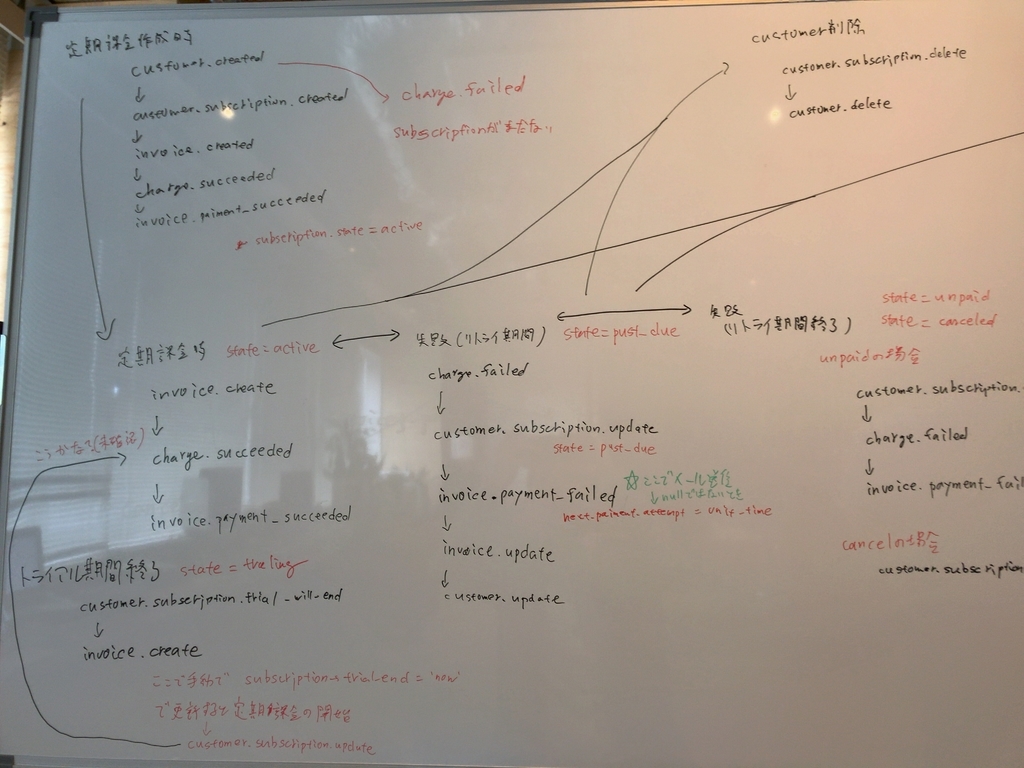 定期課金作成時
customer.created
↓
customer.subscription.created
↓
invoice.created
↓
charge.succeeded
↓
invoice.paiment_succeeded
subscription.state = active
charge.failed
subscriptionがまだない
customer削除
customer.subscription.delete
↓
customer.delete
定期課金時 state = active
invoice.create
↓
charge.succeeded
↓
invoice.payment_succeeded
トライアル期間終了 state = traling
customer.subscription.trial_will_end
↓
invoice.create
ここで手動で subscription→trial_end = 'now'
で更新すると定期課金の開始
↓
customer.subscription.update
失敗(リトライ期間) state = pust_due
charge.failed
↓
customer.subscription.update
state = pust_due
↓
invoice.payment_failed
☆ここでメール送信
↓nullではないとき
next.paiment.attempt = unix_time
↓
invoice.update
↓
customer.update
失敗
(リトライ期間終了)
state = unpaid
state = canceled
unpaidの場合
customer.subscription.
↓
charge.failed
↓
invoice.payment_fail
cancelの場合
customer.subscription